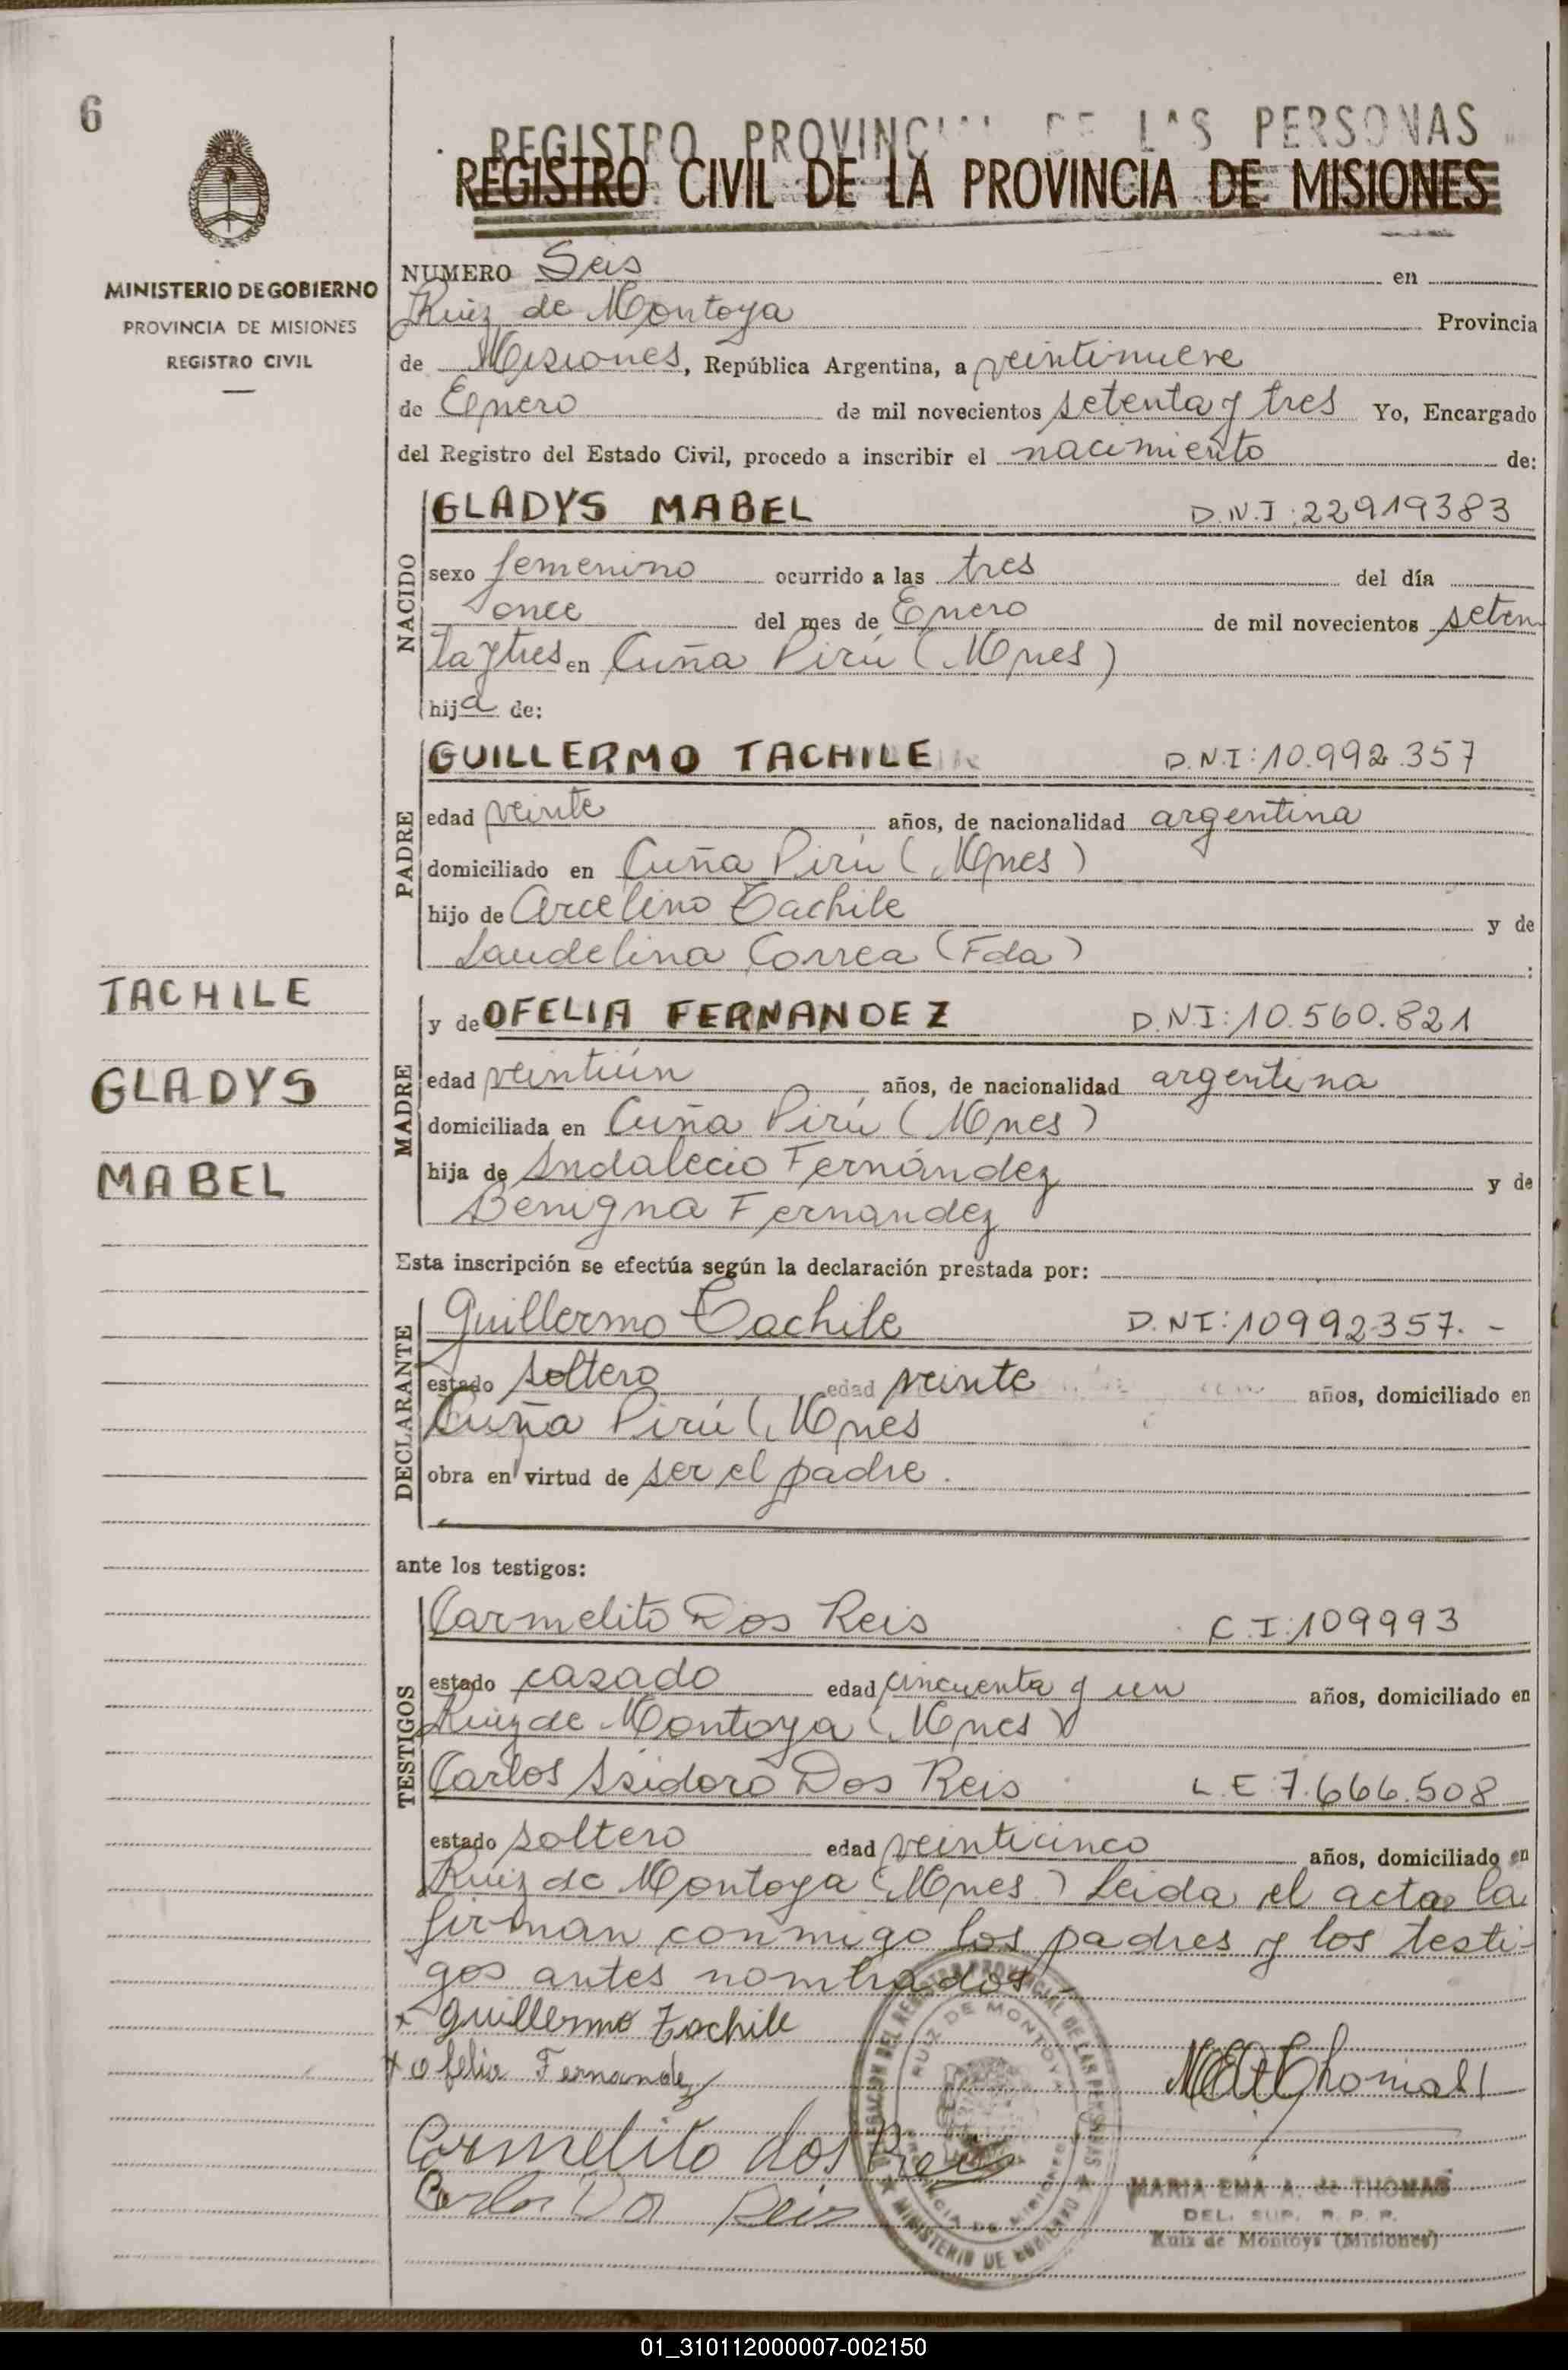 6
REGISTRO PROVINCIAL DE LAS PERSONAS
REGISTRO CIVIL DE LA PROVINCIA DE MISIONES
MINISTERIO DE GOBIERNO
PROVINCIA DE MISIONES
REGISTRO CIVIL
NUMERO Seis en
Ruiz de Montoya Provincia
de Misiones, República Argentina, a veintinueve
de Enero de mil novecientos setenta y tres Yo, Encargado
del Registro del Estado Civil, procedo a inscribir el nacimiento de:
NACIDO
GLADYS MABEL D.N.I: 22919383
sexo femenino ocurrido a las tres del día
once del mes de Enero de mil novecientos seten
ta y tres en Cuña Pirú (Mnes)
hija de:
PADRE
GUILLERMO TACHILE D.N.I: 10.992.357
edad veinte años, de nacionalidad argentina
domiciliado en Cuña Pirú (Mnes)
hijo de Arcelino Tachile y de
Laudelina Correa (Fda) :
TACHILE
GLADYS
MABEL
MADRE
y de OFELIA FERNANDEZ D.N.I: 10.560.821
edad veintiún años, de nacionalidad argentina
domiciliada en Cuña Pirú (Mnes)
hija de Indalecio Fernández y de
Benigna Fernandez
Esta inscripción se efectúa según la declaración prestada por:
DECLARANTE
Guillermo Tachile D.NI: 10992357. -
estado soltero edad veinte años, domiciliado en
Cuña Pirú (Mnes
obra en virtud de ser el padre.
ante los testigos:
TESTIGOS
Carmelito Dos Reis C.I: 109993
estado casado edad cincuenta y un años, domiciliado en
Ruiz de Montoya (Mnes)
Carlos Isidoro Dos Reis L.E 7.666.508
estado soltero edad veinticinco años, domiciliado en
Ruiz de Montoya (Mnes) Leida el acta la
firman conmigo los padres y los testi-
gos antes nombrados.-
x Guillermo Tachile
x ofelia Fernandez
Carmelito dos Reis
Carlos Dos Reis
DEL REGISTRO PROVINCIAL DE LAS PERSONAS
RUIZ DE MONTOYA
PROVINCIA DE MISIONES
MINISTERIO DE GOBIERNO
MARIA EMA A. de THOMAS
DEL. SUP. R. P. P.
Ruiz de Montoya (Misiones)
01_310112000007-002150